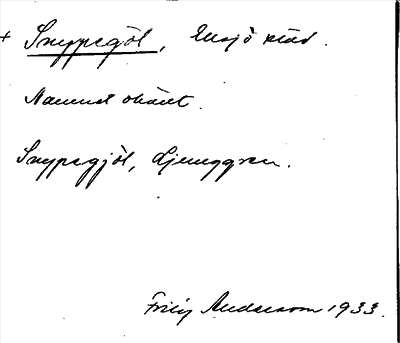 + Snyppegöl, Eksjö stad.
Namnet okänt.
Snypegjöl, Ljunggren.
Fritz Anderson 1933.